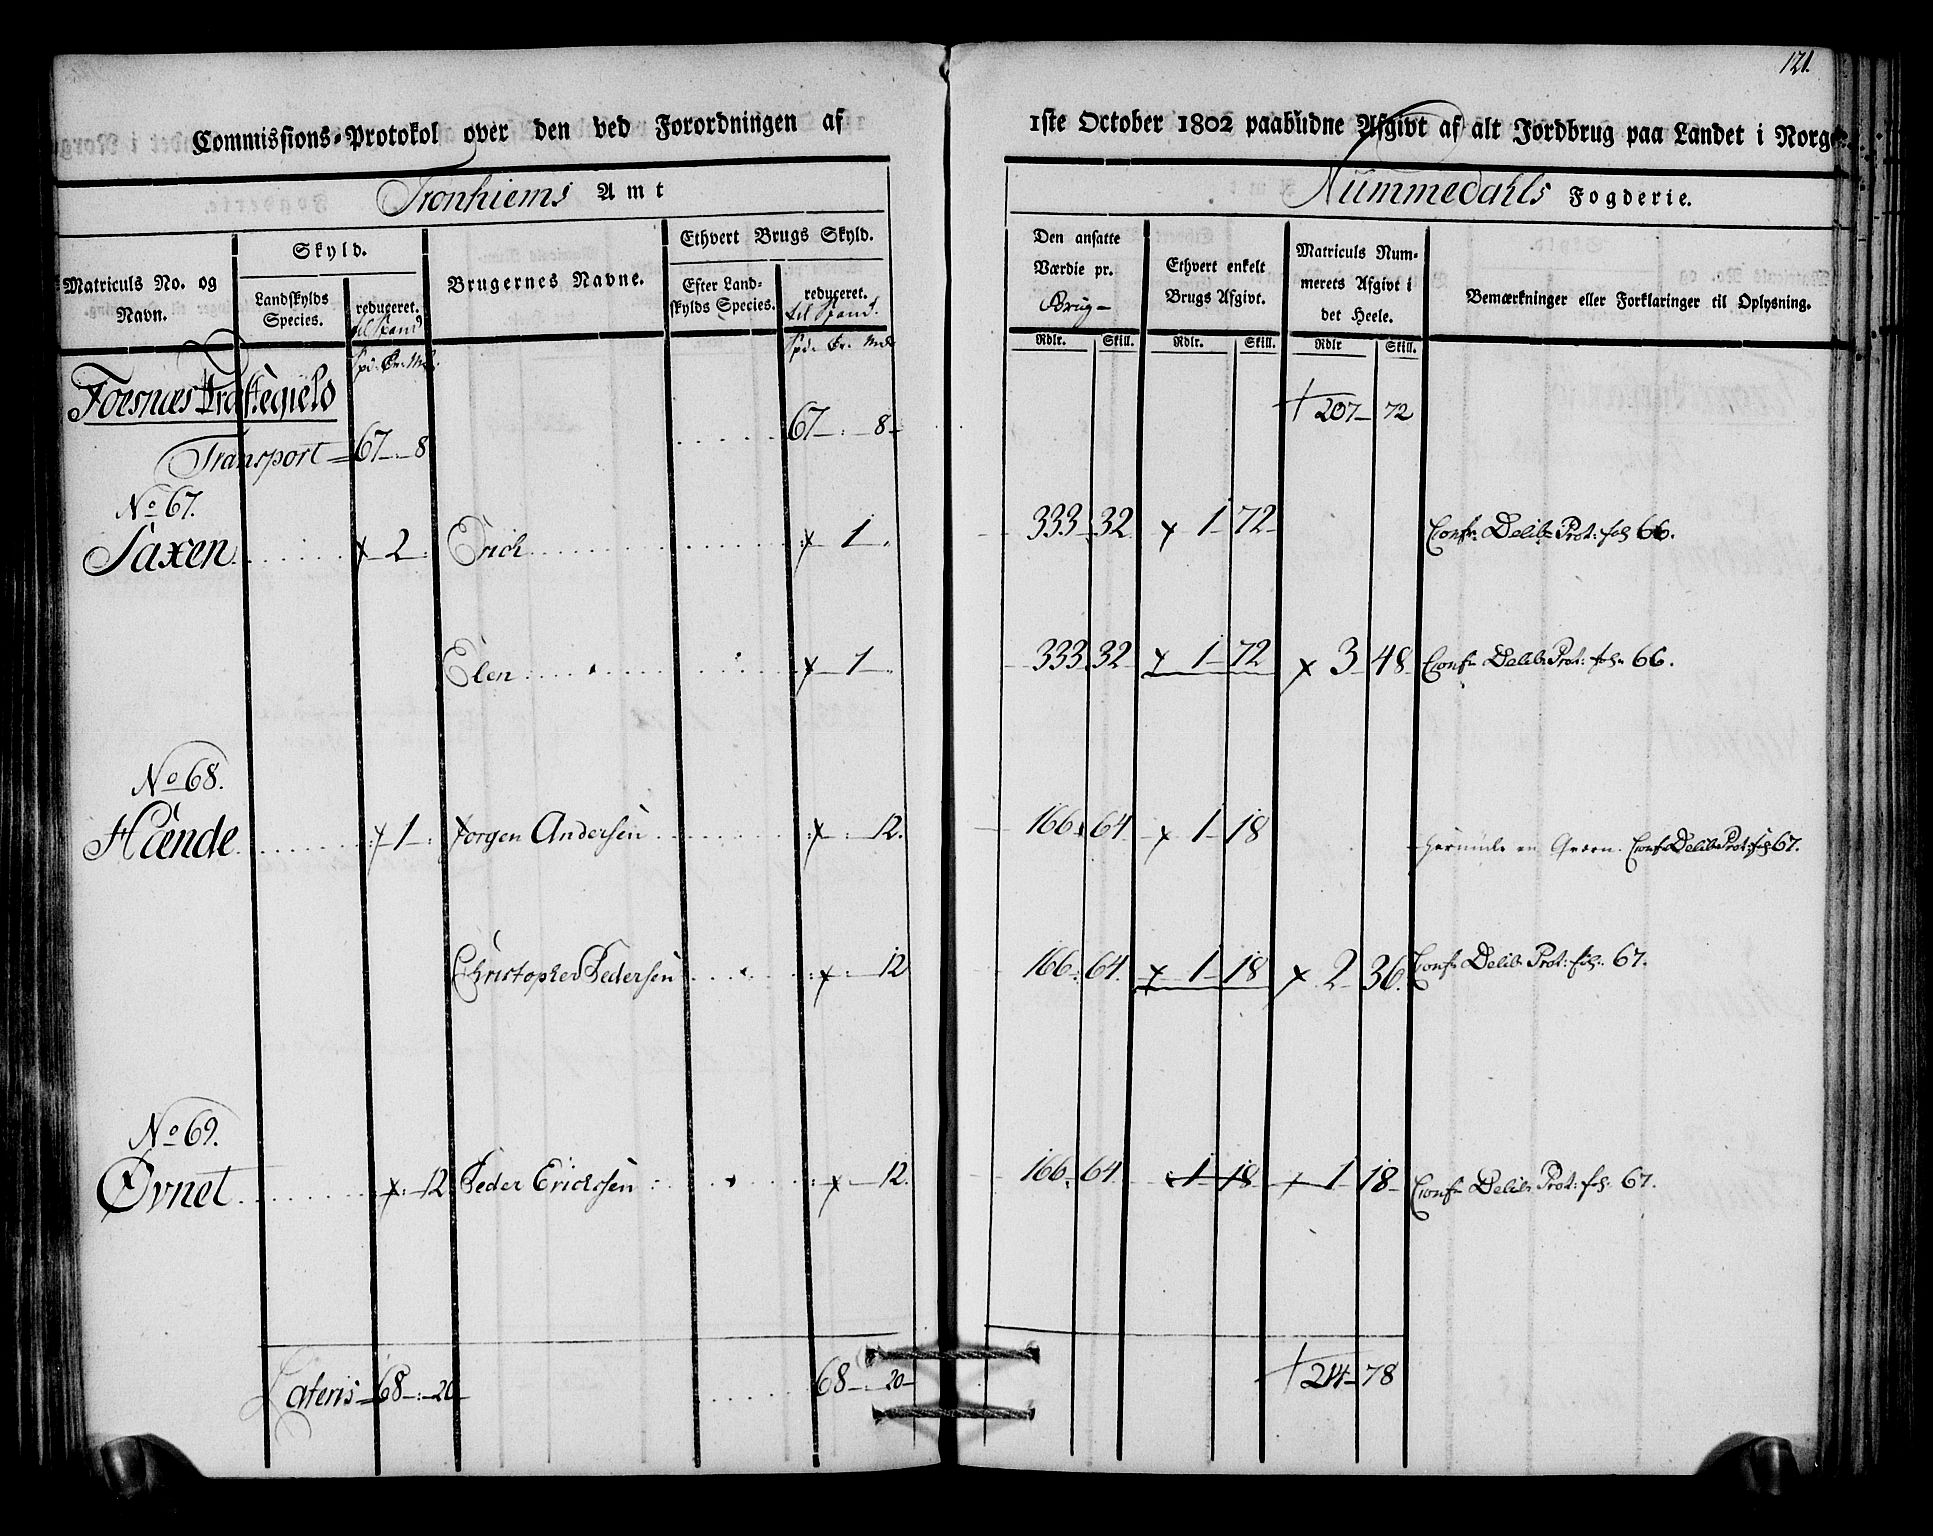 121.
Commissions-Protokol over den ved Forordningen af 1ste October 1802 paabudne Afgivt af alt Jordbrug paa Landet i Norge.
Tronhiems Amt Nummedahls Fogderie.
Matriculs No. og Navn.
Skyld.
Landskylds Species.
reduceret. til Spand
Brugernes Navne.
Ethvert Brugs Skyld.
Efter Landskylds Species.
reduceret. til Spand.
Den ansatte Værdie pr. Brug-
Ethvert enkelt Brugs Afgivt.
Matriculs Nummerets Afgivt i det Heele.
Bemærkninger eller Forklaringer til Oplysning.
Spd. Ør. Mk. Spd. Ør. Mk. Rdlr. Skill. Rdlr. Skill. Rdlr Skill.
Foesnæs Præstegield
Transport = 67 - : - 8 67 - : - 8 - 207 - 72
No 67.
Saxen 2 Erich 1 333. 32 1 - 72 Conf. Delib. Prot: fol 66.
Elen 1 333. 32 1 - 72 3 48 Conf. Delib. Prot: fol. 66.
No 68.
Hænde 1 Jorgen Andersen 12. 166. 64. 1 - 18 en Qværn. Conf. Delib. Prot: fol. 67.
Christopher Pedersen 12 166. 64. 1 - 18 2 - 36. Conf. Delib. Prot: fol. 67.
No 69.
Øvnet 12 Peder Erichsen 12. 166. 64. 1 - 18 1 18 - Conf. Delib. Prot: fol. 67.
Lateris = 68 - : - 20 - 68 - : 20 - 214 - 78